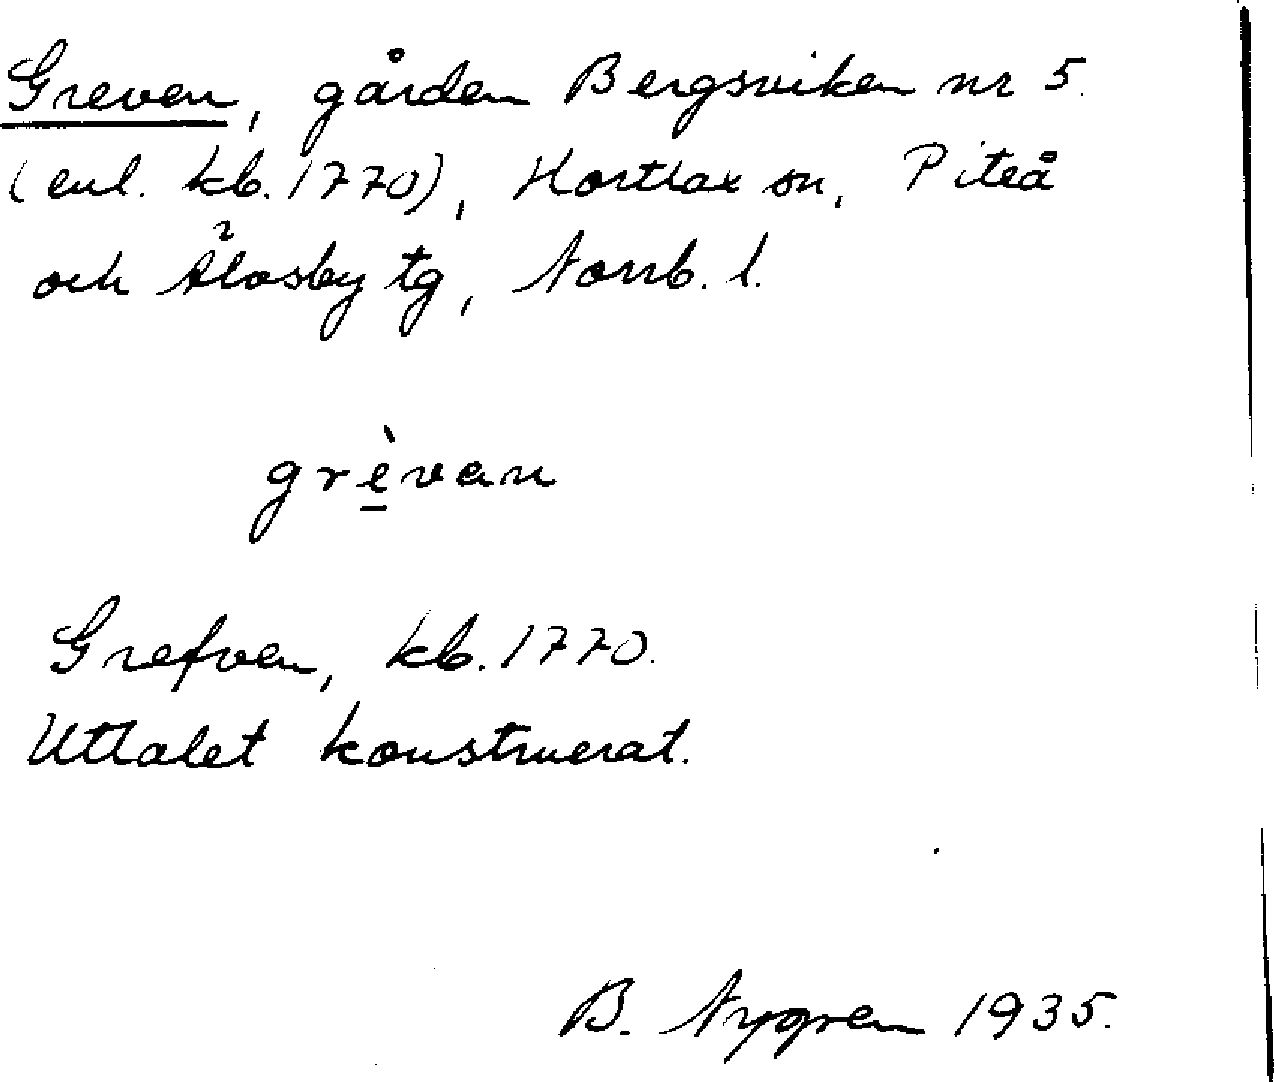 Greven, gården Bergsviken nr 5.
(enl. kb. 1770), Hortlax sn, Piteå
och Älvsby tg, Norrb. l.
grèvan
Grefven, kb. 1770.
Uttalet konstruerat.
B. Nygren 1935.